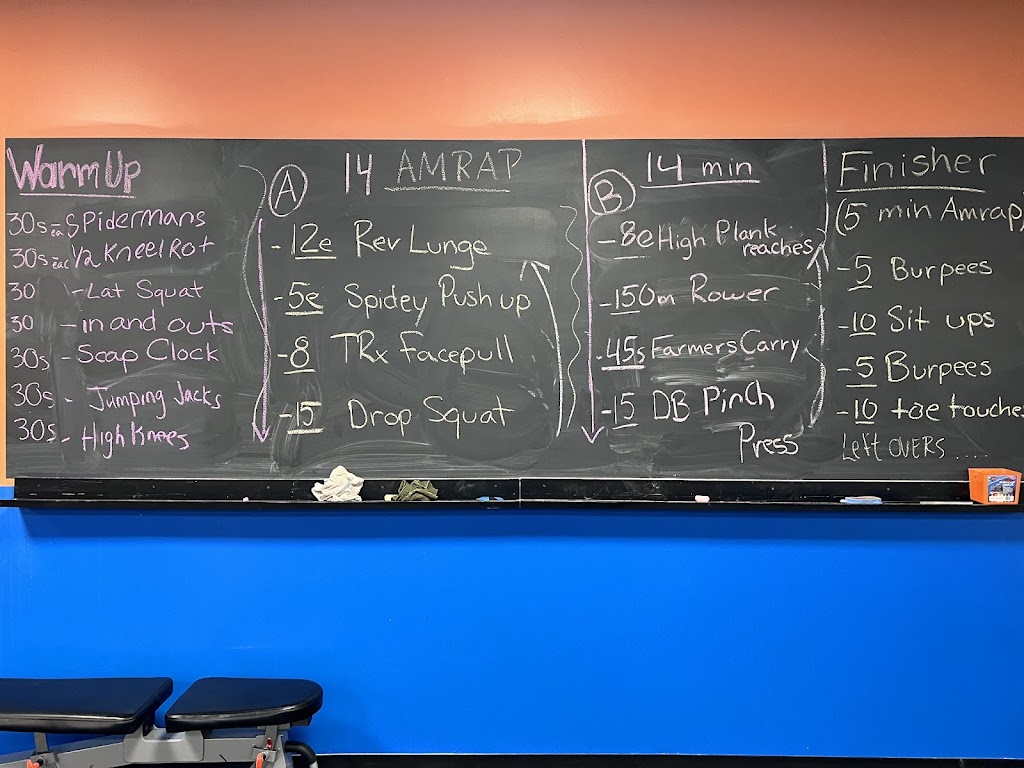 Warm Up
30s ea Spidermans
30s eac 1/2 Kneel Rot
30 - Lat Squat
30 - in and outs
30s - Scap Clock
30s - Jumping Jacks
30s - High Knees
A 14 AMRAP
- 12e Rev Lunge
- 5e Spidey Push up
- 8 TRx facepull
- 15 Drop Squat
B 14 min
- 8e High Plank
reaches
- 150m Rower
- 45s Farmers Carry
- 15 DB Pinch
Press
Finisher
(5 min Amrap)
- 5 Burpees
- 10 Sit ups
- 5 Burpees
- 10 toe touches
Left overs ....